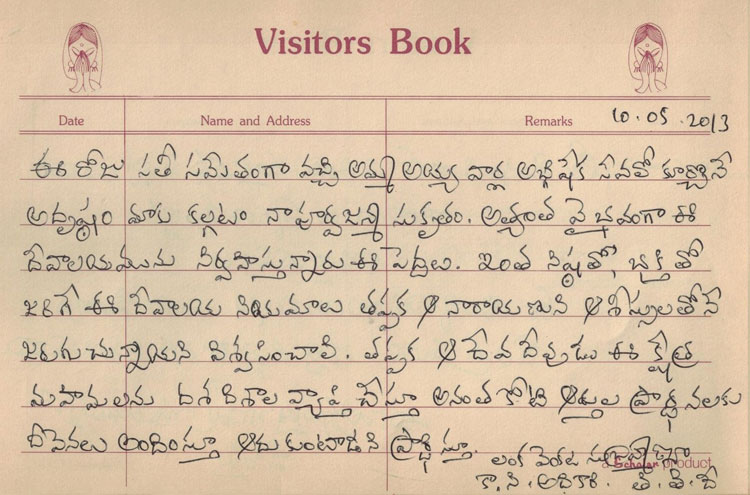 Visitors Book
Date Name and Address Remarks 10.05.2013
ఈ రోజు సతీ సమేతంగా వచ్చి అమ్మ అయ్య వార్ల అభిషేక సేవలో కూర్చునే
అదృష్టం మాకు కల్గటం నా పూర్వజన్మ సుకృతం. అత్యంత వైభవంగా ఈ
దేవాలయమును నిర్వహిస్తున్నారు ఈ పెద్దలు. ఇంత నిష్ఠతో, భక్తితో
జరిగే ఈ దేవాలయ నియమాలు తప్పక ఆ నారాయణుని ఆశీస్సులతోనే
జరుగుచున్నాయని విశ్వసించాలి. తప్పక ఆ దేవదేవుడు ఈ క్షేత్ర
మహిమలను దశ దిశాల వ్యాప్తి చేస్తూ అనంత కోటి ఆర్తుల ప్రార్థనలకు
దీవెనలు అందిస్తూ ఆదుకుంటాడని ప్రార్థిస్తూ.
లంక వెంకట
a Scholar product
తి. తి. దే